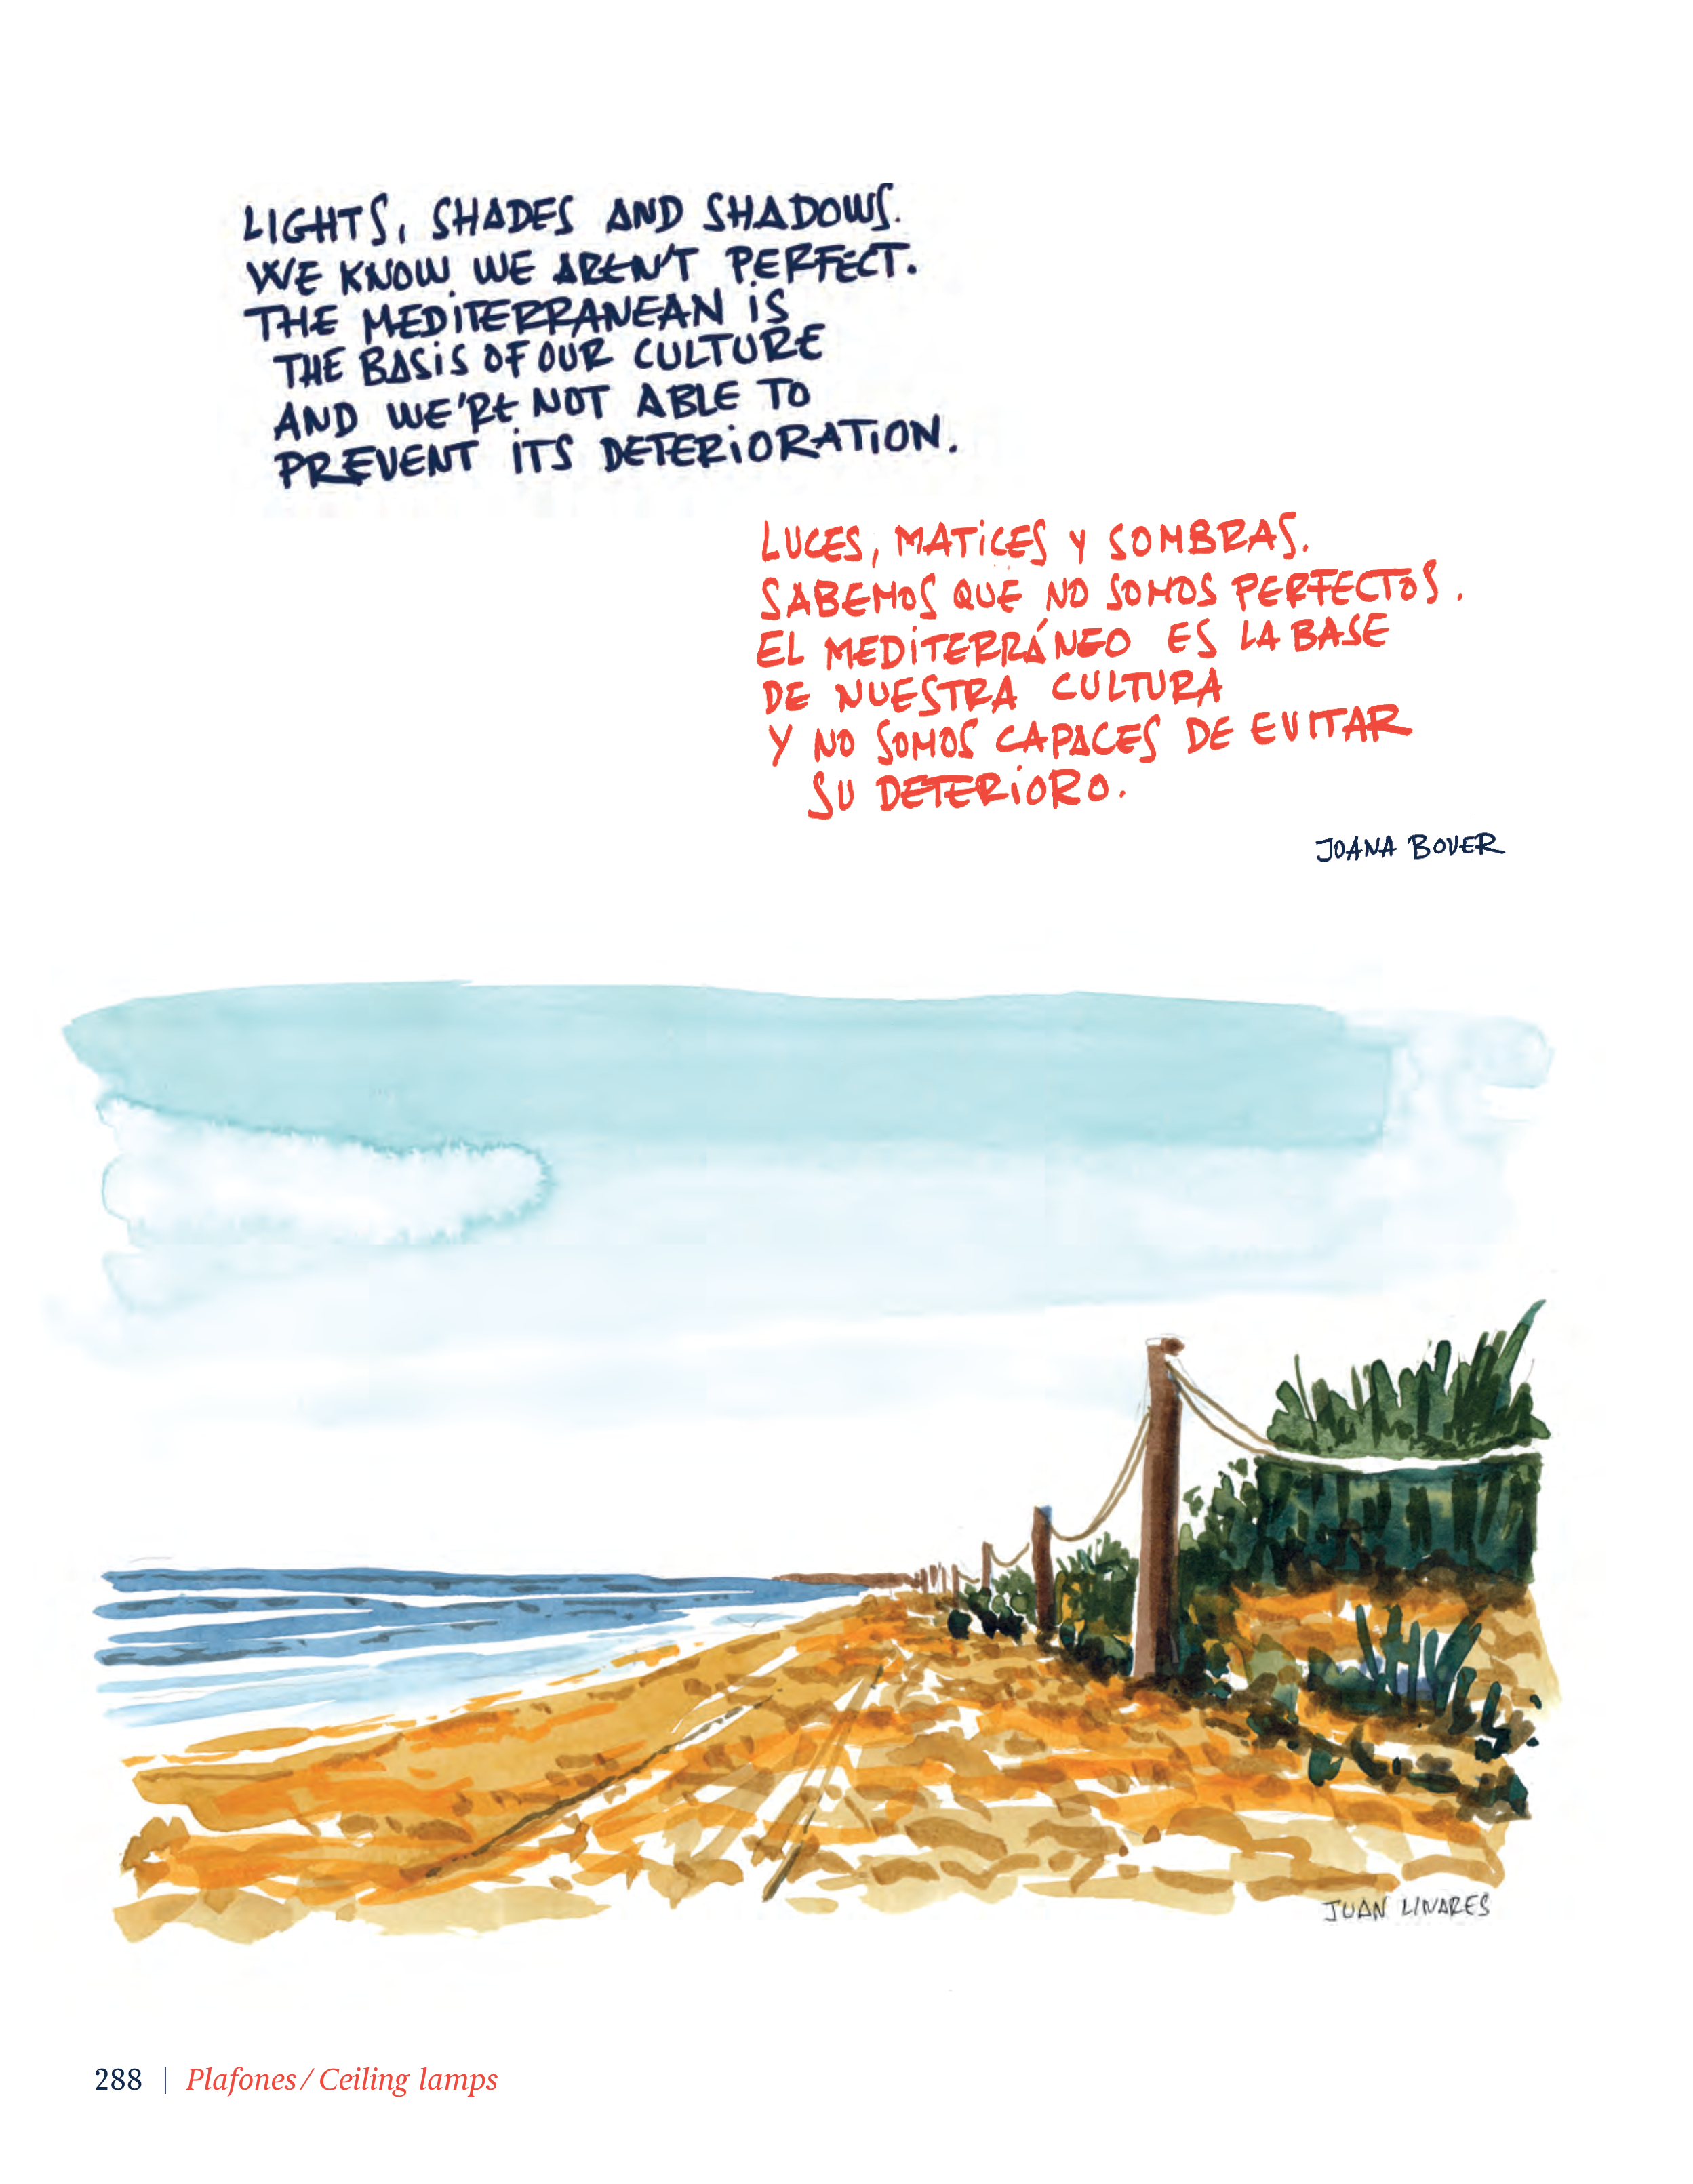 LIGHTS, SHADES AND SHADOWS.
WE KNOW WE AREN'T PERFECT.
THE MEDiTERRANEAN iS
THE BASiS OF OUR CULTURE
AND WE'RE NOT ABLE TO
PREVENT iTS DETERiORATiON.
LUCES, MATiCES Y SOMBRAS.
SABEMOS QUE NO SOMOS PERFECTOS.
EL MEDiTERRÁNEO ES LA BASE
DE NUESTRA CULTURA
Y NO SOMOS CAPACES DE EVITAR
SU DETERiORO.
JOANA BOVER
JUAN LINARES
288 | Plafones / Ceiling lamps